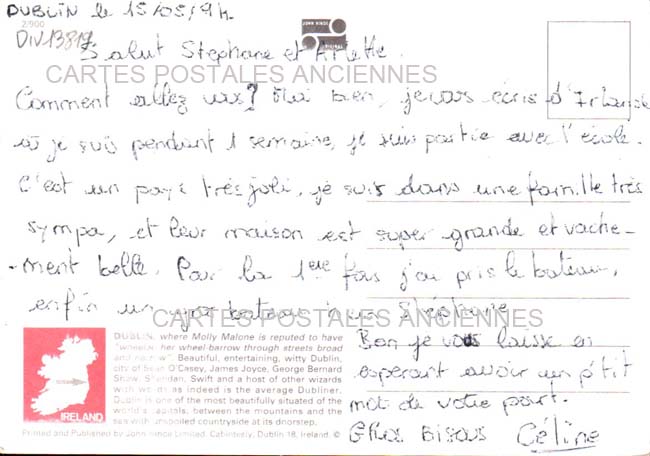 DUBLIN le 15/05/94.
2/900
DIV13819
JOHN HINDE
Salut Stephane et Arlette.
CARTES POSTALES ANCIENNES
Comment allez vous? Moi bien, je vous écris d'Irlande
où je suis pendant 1 semaine, je suis partie avec l'école.
C'est un pays très joli, je suis dans une famille très
sympa, et leur maison est super grande et vache-
-ment belle. Pour la 1ère fois j'ai pris le bateau,
enfin un gros bateau Stéphane
CARTES POSTALES ANCIENNES
Bon je vous laisse en
esperant avoir un p'tit
mot de votre part.
Gros Bisous Céline
IRELAND
DUBLIN, where Molly Malone is reputed to have
"wheel'd her wheel-barrow through streets broad
and narrow". Beautiful, entertaining, witty Dublin,
city of Sean O'Casey, James Joyce, George Bernard
Shaw, Sheridan, Swift and a host of other wizards
with words as indeed is the average Dubliner.
Dublin is one of the most beautifully situated of the
world's capitals, between the mountains and the
sea with unspoiled countryside at its doorstep.
Printed and Published by John Hinde Limited, Cabinteely, Dublin 18, Ireland. ©